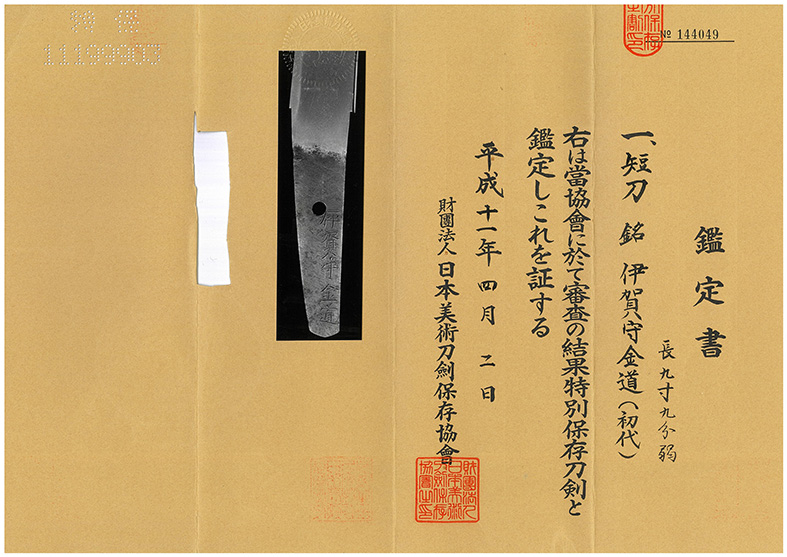 № 144049
鑑定書
一、短刀 銘 伊賀守金道(初代)
長九寸九分弱
右は當協會に於て審査の結果特別保存刀剣と
鑑定しこれを証する
平成十一年四月二日
財團法人日本美術刀劍保存協會
財團法人日本美術刀劍保存協會之印
伊賀守金道
11199903